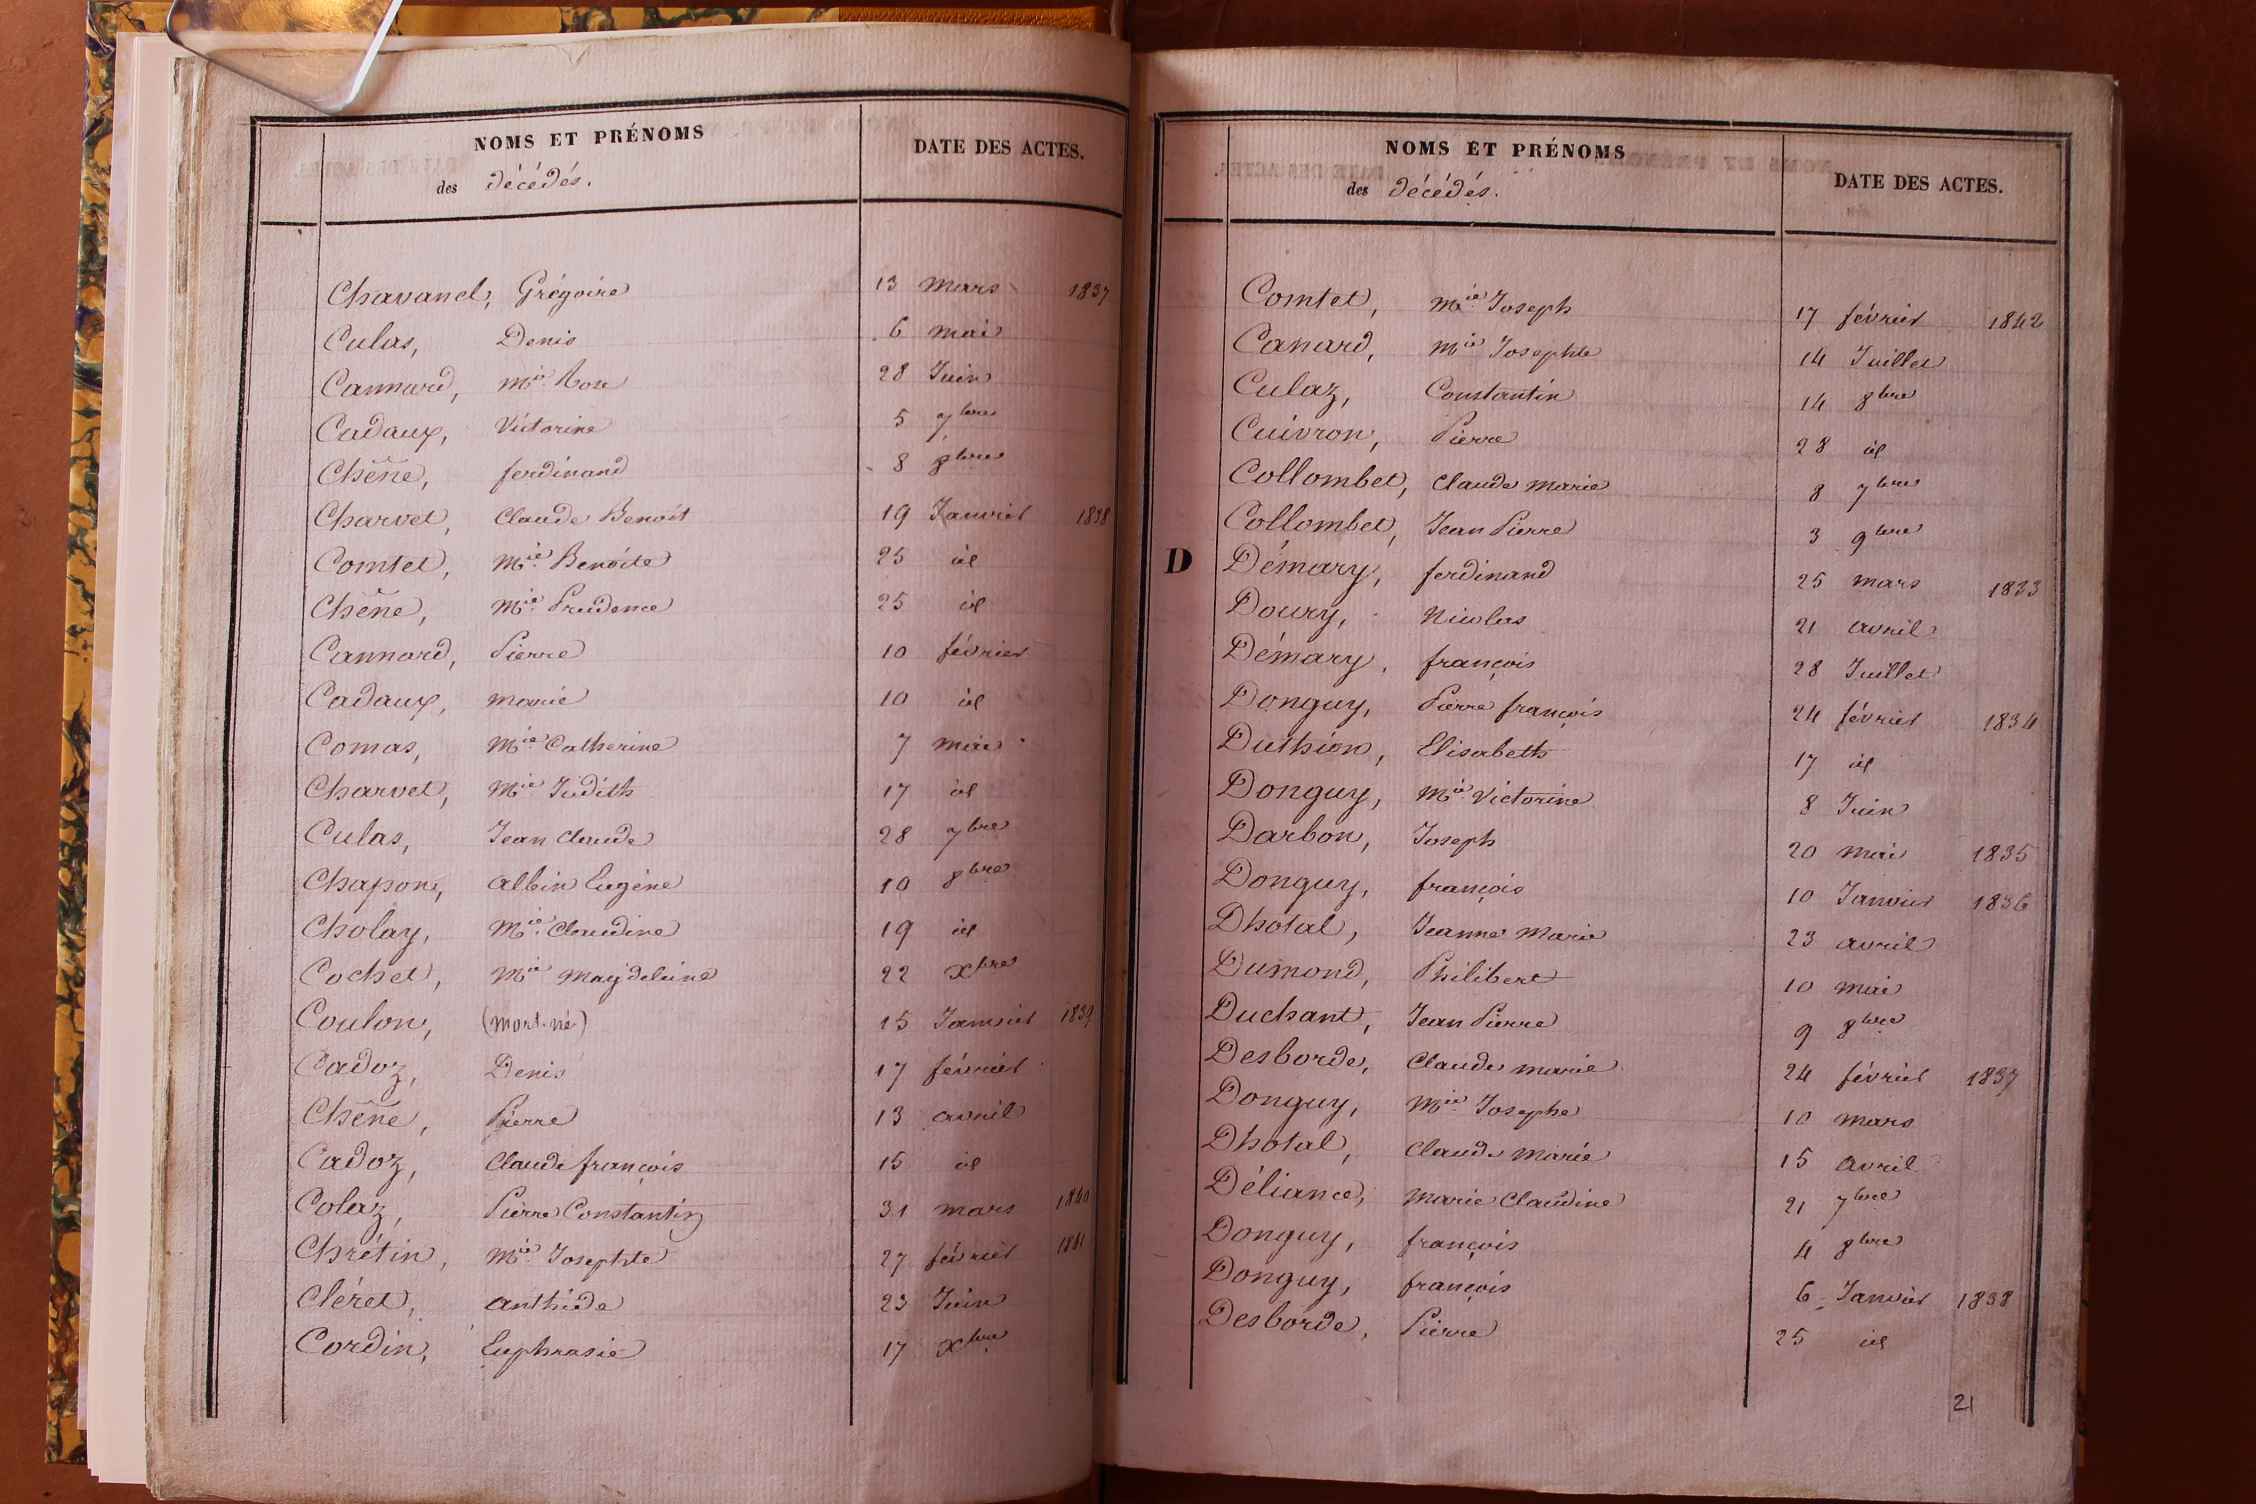 NOMS ET PRÉNOMS
des décédés.
DATE DES ACTES.
Chavanel, Grégoire 13 mars 1837
Culas, Denis 6 mai
Cannard, Mie Rose 28 Juin
Cadaux, Victorine 5 7bre
Chêne, ferdinand 8 8bre
Charvet, Claude Benoit 19 Janvier 1838
Comtet, Mie Benoite 25 id
Chêne, Mie Prudence 25 id
Cannard, Pierre 10 février
Cadaux, marie 10 id
Comas, Mie Catherine 7 mai
Charvet, Mie Judith 17 id
Culas, Jean Claude 28 7bre
Chapon, albin Eugène 10 8bre
Cholay, Mie Claudine 19 id
Cochet, Mie Magdeleine 22 Xbre
Coulon, (mort-né) 15 Janvier 1839
Cadoz, Denis 17 février
Chêne, Pierre 13 avril
Cadoz, Claude françois 15 id
Colaz, Pierre Constantin 31 mars 1840
Chrétin, Mie Josephte 27 février 1841
Cléret, anthide 23 Juin
Cordin, Euphrasie 17 Xbre
NOMS ET PRÉNOMS
des décédés.
DATE DES ACTES.
Comtet, Mie Joseph 17 février 1842
Canard, Mie Josephte 14 Juillet
Culaz, Constantin 14 8bre
Cuivron, Pierre 28 id
Collombet, Claude Marie 8 7bre
Collombet, Jean Pierre 3 9bre
D Démary, ferdinand 25 mars 1833
Doury, Nicolas 21 avril
Démary, françois 28 Juillet
Donguy, Pierre françois 24 février 1834
Duthion, Elisabeth 17 id
Donguy, Mie Victorine 8 Juin
Darbon, Joseph 20 mai 1835
Donguy, françois 10 Janvier 1836
Dhotal, Jeanne Marie 23 avril
Dumond, Philibert 10 mai
Duchant, Jean Pierre 9 8bre
Desborde, Claude marie 24 février 1837
Donguy, Mie Josephe 10 mars
Dhotal, Claude Marie 15 avril
Déliance, Marie Claudine 21 7bre
Donguy, françois 4 8bre
Donguy, françois 6 Janvier 1838
Desborde, Pierre 25 id
21